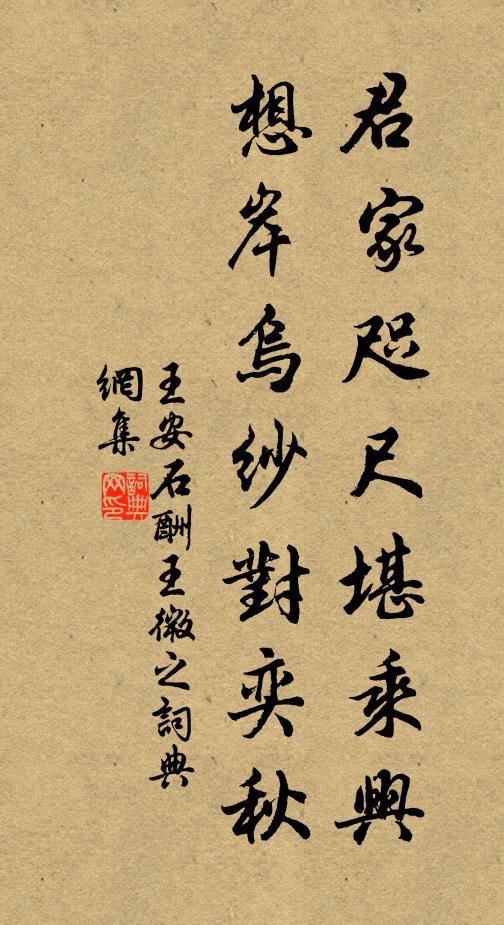 君家咫尺堪乘興
想岸烏紗對奕秋
王安石酬王微之詞典
網集
詞典网印